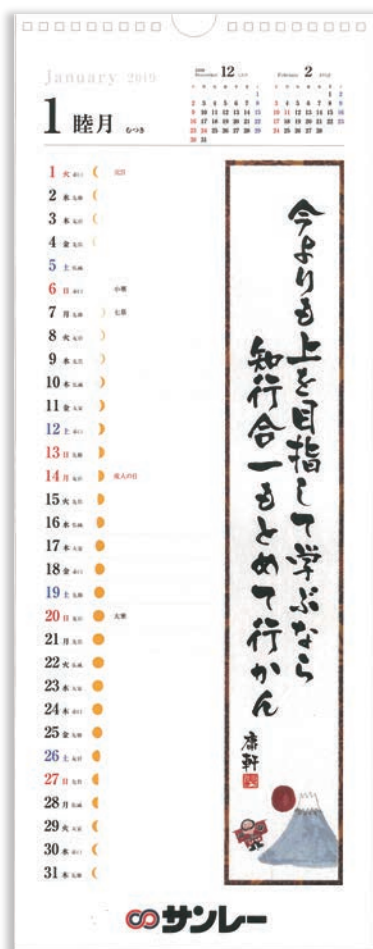 January 2019
1 睦月 むつき
12
2 3 4 5 6 7 8
9 10 11 12 13 14 15
16 17 18 19 20 21 22
23 24 25 26 27 28 29
30 31
February 2
1 2
3 4 5 6 7 8 9
10 11 12 13 14 15 16
17 18 19 20 21 22 23
24 25 26 27 28
1 火 元日
2 水
3 木
4 金
5 土
6 日 小寒
7 月 七草
8 火
9 水
10 木
11 金
12 土
13 日
14 月 成人の日
15 火
16 水
17 木
18 金
19 土
20 日 大寒
21 月
22 火
23 水
24 木
25 金
26 土
27 日
28 月
29 火
30 水
31 木
今よりも上を目指して学ぶなら
知行合一もとめて行かん
庸軒
サンレー